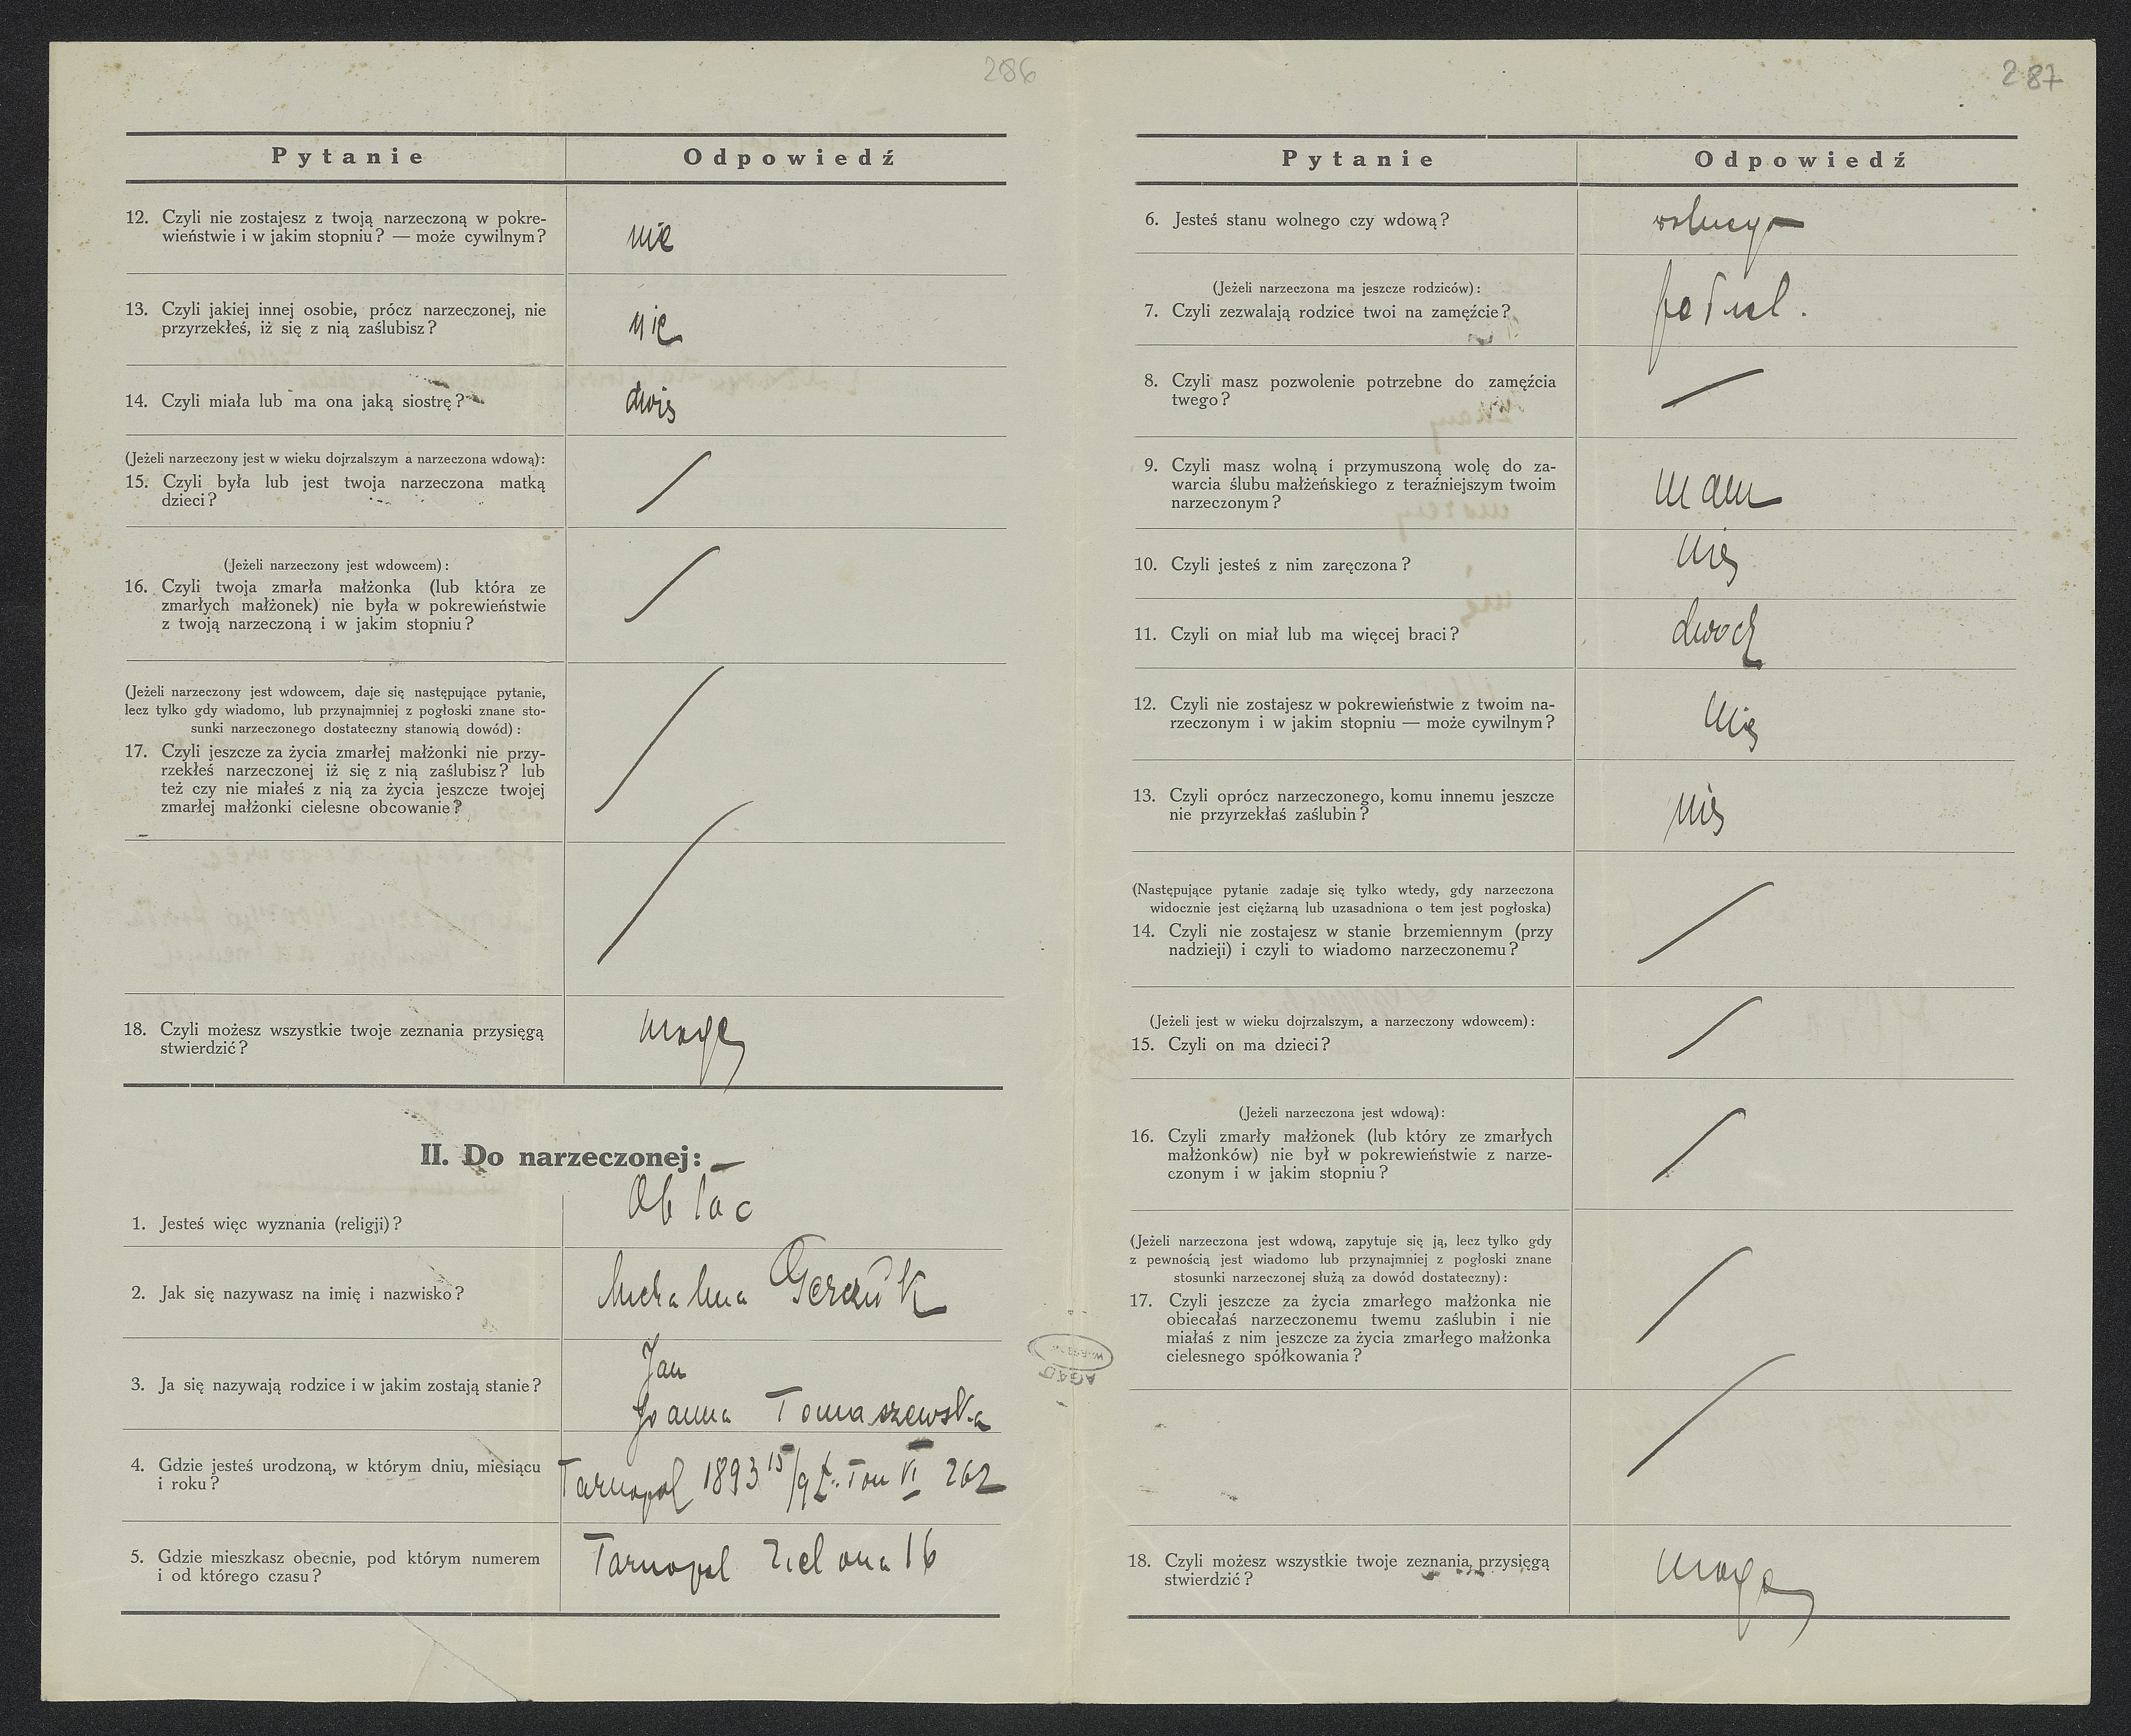 286
Pytanie Odpowiedź
12. Czyli nie zostajesz z twoją narzeczoną w pokre-
wieństwie i w jakim stopniu? — może cywilnym?
nie
13. Czyli jakiej innej osobie, prócz narzeczonej, nie
przyrzekłeś, iż się z nią zaślubisz?
nie
14. Czyli miała lub ma ona jaką siostrę?
dwie
(Jeżeli narzeczony jest w wieku dojrzalszym a narzeczona wdową):
15. Czyli była lub jest twoja narzeczona matką
dzieci?
(Jeżeli narzeczony jest wdowcem):
16. Czyli twoja zmarła małżonka (lub która ze
zmarłych małżonek) nie była w pokrewieństwie
z twoją narzeczoną i w jakim stopniu?
(Jeżeli narzeczony jest wdowcem, daje się następujące pytanie,
lecz tylko gdy wiadomo, lub przynajmniej z pogłoski znane sto-
sunki narzeczonego dostateczny stanowią dowód):
17. Czyli jeszcze za życia zmarłej małżonki nie przy-
rzekłeś narzeczonej iż się z nią zaślubisz? lub
też czy nie miałeś z nią za życia jeszcze twojej
zmarłej małżonki cielesne obcowanie?
18. Czyli możesz wszystkie twoje zeznania przysięgą
stwierdzić?
mogę
II. Do narzeczonej:
1. Jesteś więc wyznania (religji)?
Ob łac
2. Jak się nazywasz na imię i nazwisko?
Michalina
3. Ja się nazywają rodzice i w jakim zostają stanie?
Jan
Joanna Tomaszewska
4. Gdzie jesteś urodzoną, w którym dniu, miesiącu
i roku?
Tarnopol 1893 15/9 Tom VI 262
5. Gdzie mieszkasz obecnie, pod którym numerem
i od którego czasu?
Tarnopol Zielona 16
287
Pytanie Odpowiedź
6. Jesteś stanu wolnego czy wdową?
wolnego
(Jeżeli narzeczona ma jeszcze rodziców):
7. Czyli zezwalają rodzice twoi na zamęźcie?
8. Czyli masz pozwolenie potrzebne do zamęźcia
twego?
9. Czyli masz wolną i przymuszoną wolę do za-
warcia ślubu małżeńskiego z teraźniejszym twoim
narzeczonym?
mam
10. Czyli jesteś z nim zaręczona?
nie
11. Czyli on miał lub ma więcej braci?
dwoch
12. Czyli nie zostajesz w pokrewieństwie z twoim na-
rzeczonym i w jakim stopniu — może cywilnym?
nie
13. Czyli oprócz narzeczonego, komu innemu jeszcze
nie przyrzekłaś zaślubin?
nie
(Następujące pytanie zadaje się tylko wtedy, gdy narzeczona
widocznie jest ciężarną lub uzasadniona o tem jest pogłoska)
14. Czyli nie zostajesz w stanie brzemiennym (przy
nadzieji) i czyli to wiadomo narzeczonemu?
(Jeżeli jest w wieku dojrzalszym, a narzeczony wdowcem):
15. Czyli on ma dzieci?
(Jeżeli narzeczona jest wdową):
16. Czyli zmarły małżonek (lub który ze zmarłych
małżonków) nie był w pokrewieństwie z narze-
czonym i w jakim stopniu?
(Jeżeli narzeczona jest wdową, zapytuje się ją, lecz tylko gdy
z pewnością jest wiadomo lub przynajmniej z pogłoski znane
stosunki narzeczonej służą za dowód dostateczny):
17. Czyli jeszcze za życia zmarłego małżonka nie
obiecałaś narzeczonemu twemu zaślubin i nie
miałaś z nim jeszcze za życia zmarłego małżonka
cielesnego spółkowania?
18. Czyli możesz wszystkie twoje zeznania przysięgą
stwierdzić?
mogę
AGAD